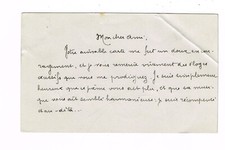 Mon cher ami,
Votre aimable carte me fait un doux en-cou-
ragement, et je vous remercie vivement des éloges
que vous me prodiguez. Je suis simplement
heureux que ce poème vous ait plu, et que sa musi-
que vous ait semblé harmonieuse : je suis récompensé